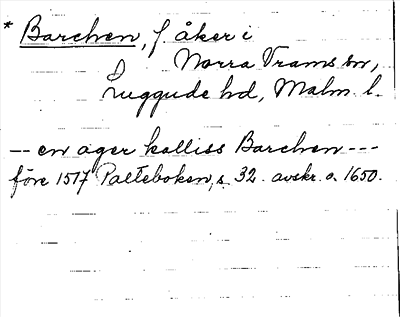 * Barchen, f. åker i
Norra Vrams sn,
Luggude hd, Malm. l.
-- en ager kalliss Barchen ---
före 1517 Palteboken, s. 32. avskr. o. 1650.